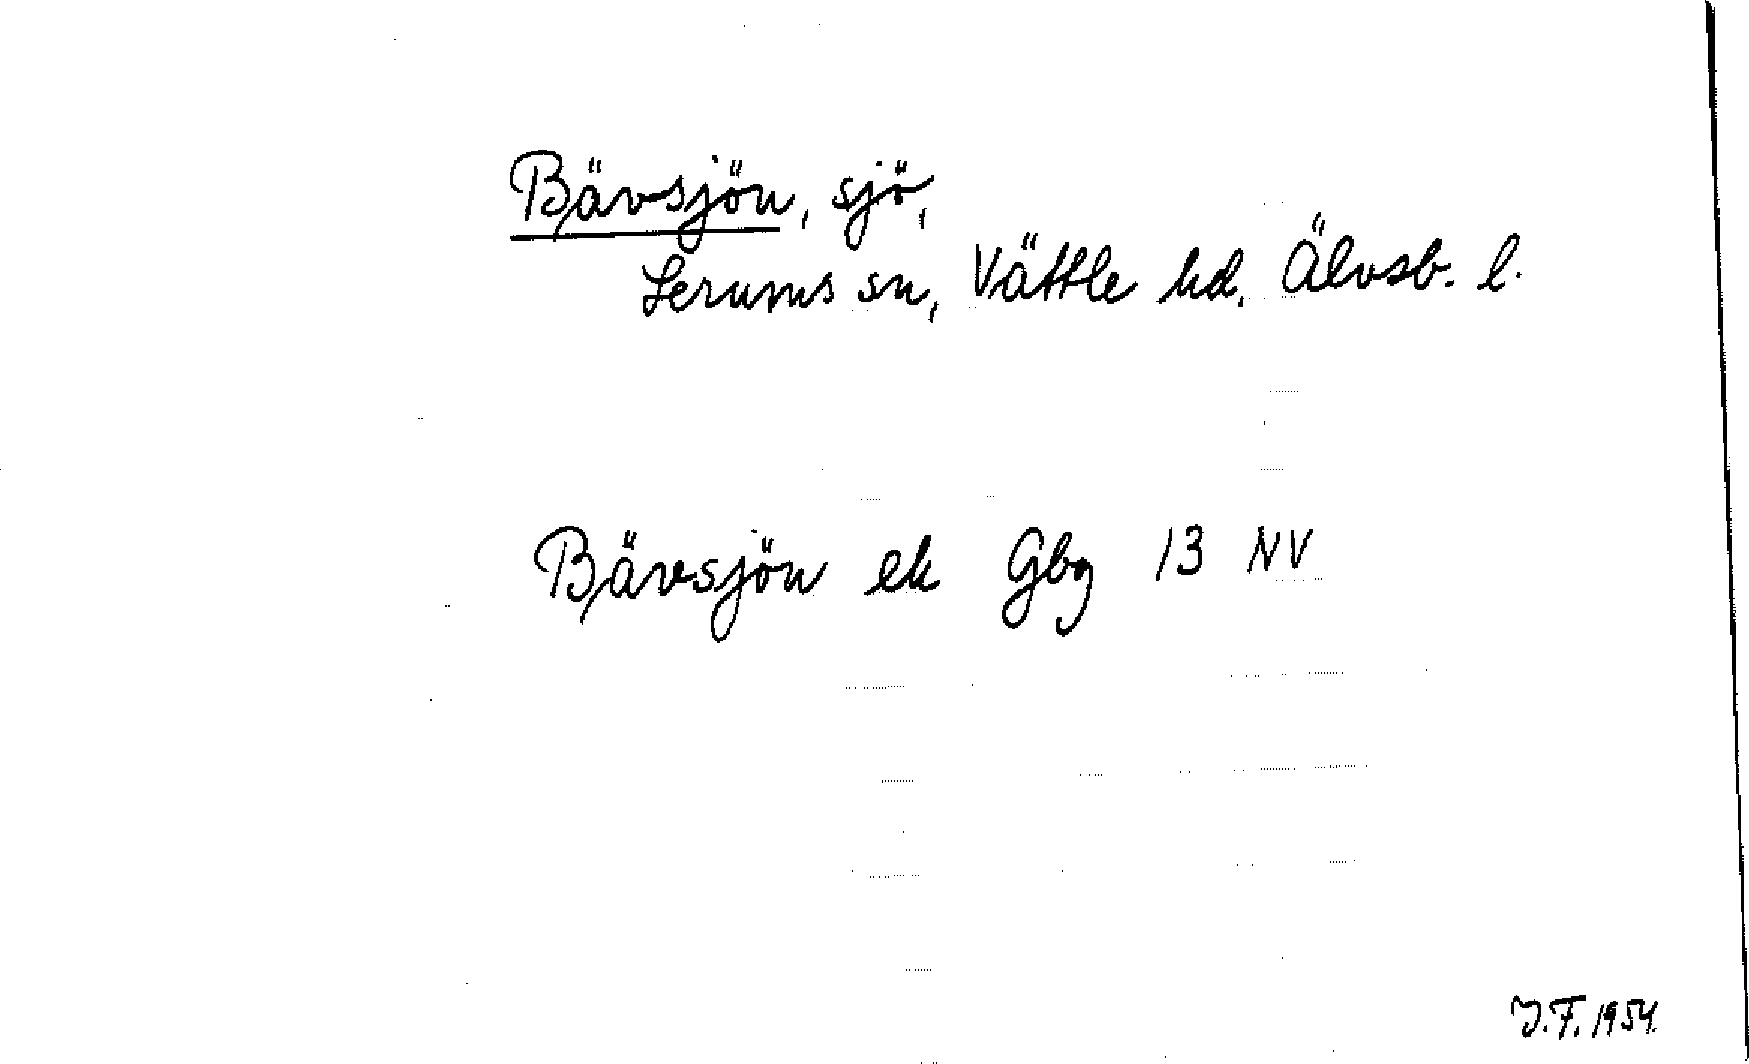 Bävsjön, sjö,
Lerums sn, Vättle hd. Älvsb. l.
Bävsjön ek Gbg 13 NV
J.F. 1954.